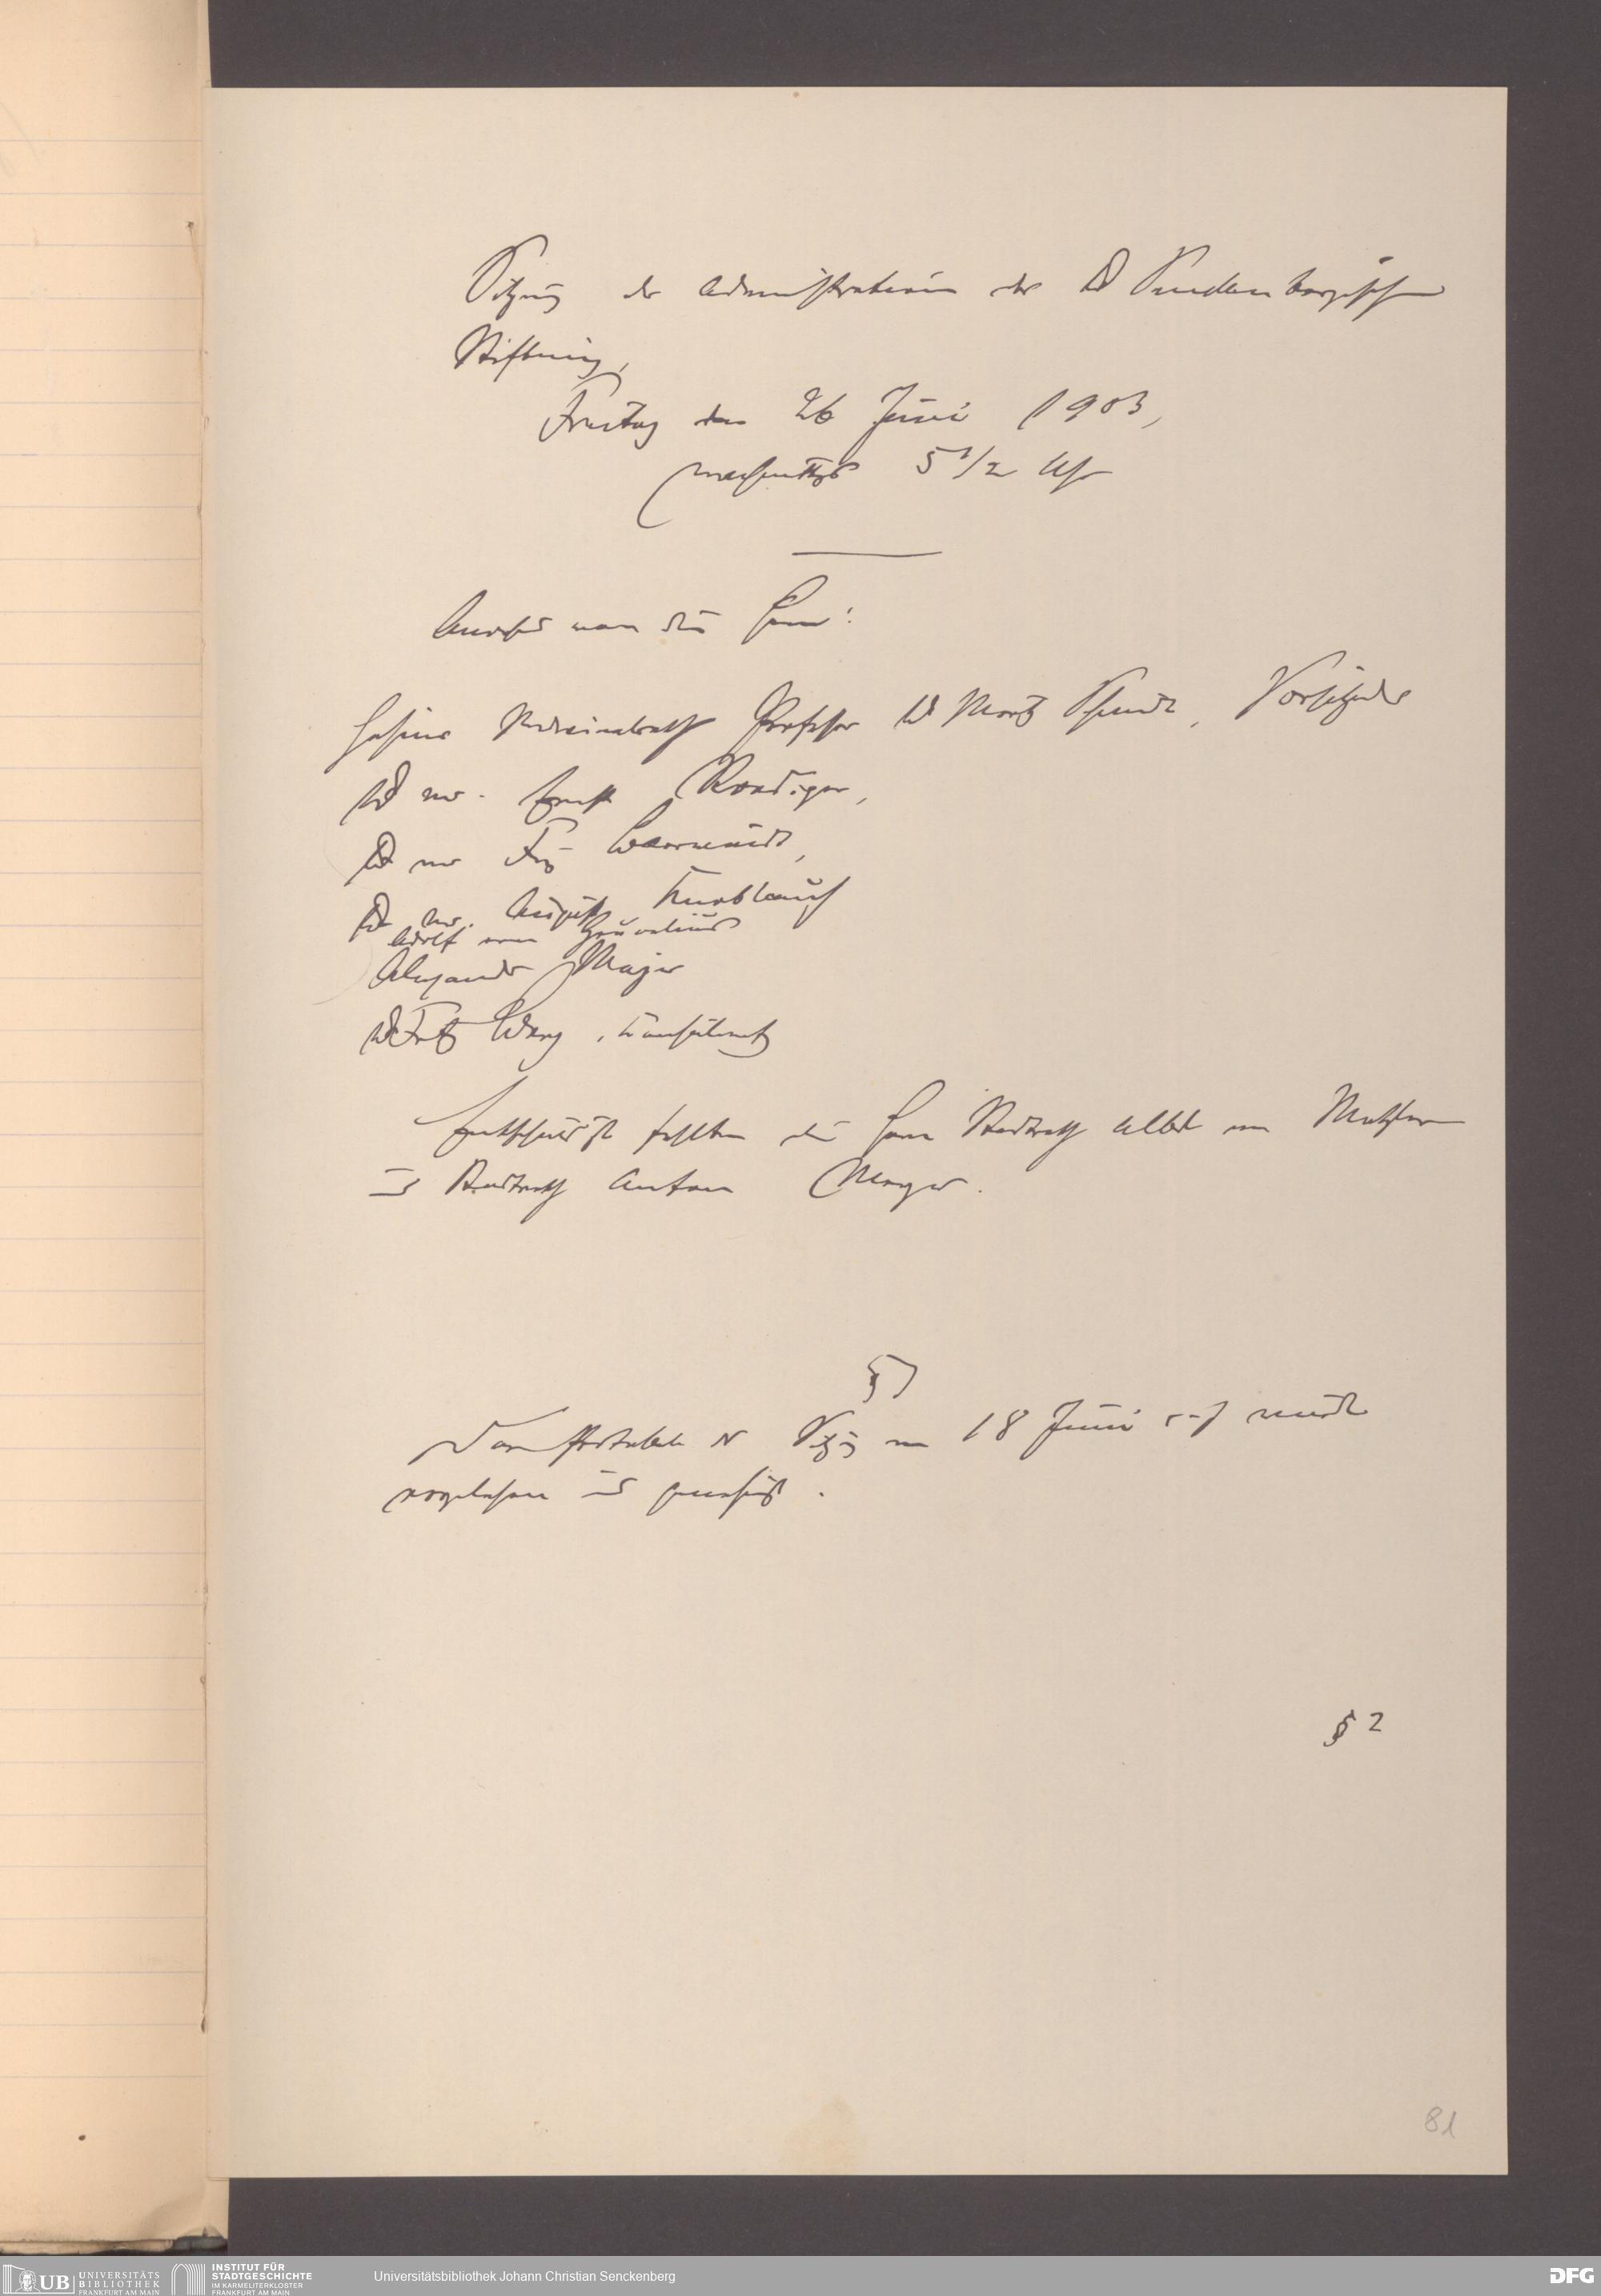 Sitzung der Administration der Dr Senckenbergischen
Stiftung,
Freitag den 26 Juni 1903,
nachmittgs 5 1/2 Uhr
Anwesend waren die Herren:
Geheimer Medicinalrath Professor Dr Moritz Schmidt, Vorsitzender
Dr med. Ernst Roediger,
Dr med. Frz
Dr med. August Knoblauch
Adolf von Grunelius
Alexander Majer
Dr Fritz Berg, Consulent
Entschuldigt fehlten die Herren Stadtrath Albert von Metzler
und Stadtrath Anton Meyer.
§ 1
Das Protokoll der Sitzung vom 18 Juni 1903 wurde
vorgelesen und genehmigt.
§ 2
81
UB UNIVERSITÄTS
BIBLIOTHEK
FRANKFURT AM MAIN
INSTITUT FÜR
STADTGESCHICHTE
IM KARMELITERKLOSTER
FRANKFURT AM MAIN
Universitätsbibliothek Johann Christian Senckenberg
DFG